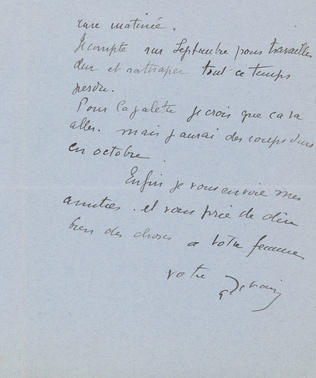 une matinée.
Je compte sur Septembre pour travailler
dur et rattraper tout ce temps
perdu.
Pour la galette je crois que ca va
aller. mais j'aurai des coups durs
en octobre.
Enfin je vous envoie mes
amitiés. et vous prie de dire
bien des choses a votre femme
votre